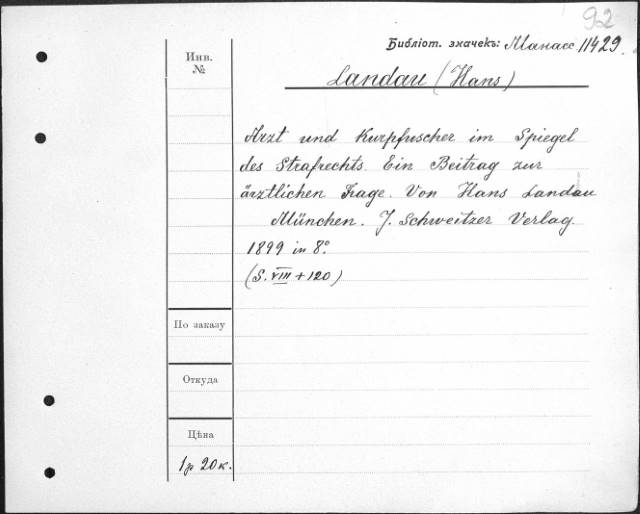 92
Библіот. значекъ: Манасс 11429.
Инв.
№
Landau (Hans)
Arzt und Kurpfuscher im Spiegel
des Strafrechts. Ein Beitrag zur
ärztlichen Frage. Von Hans Landau
München. J. Schweitzer Verlag.
1899 in 8°.
(S. VIII + 120)
По заказу
Откуда
Цѣна
1р 20к.